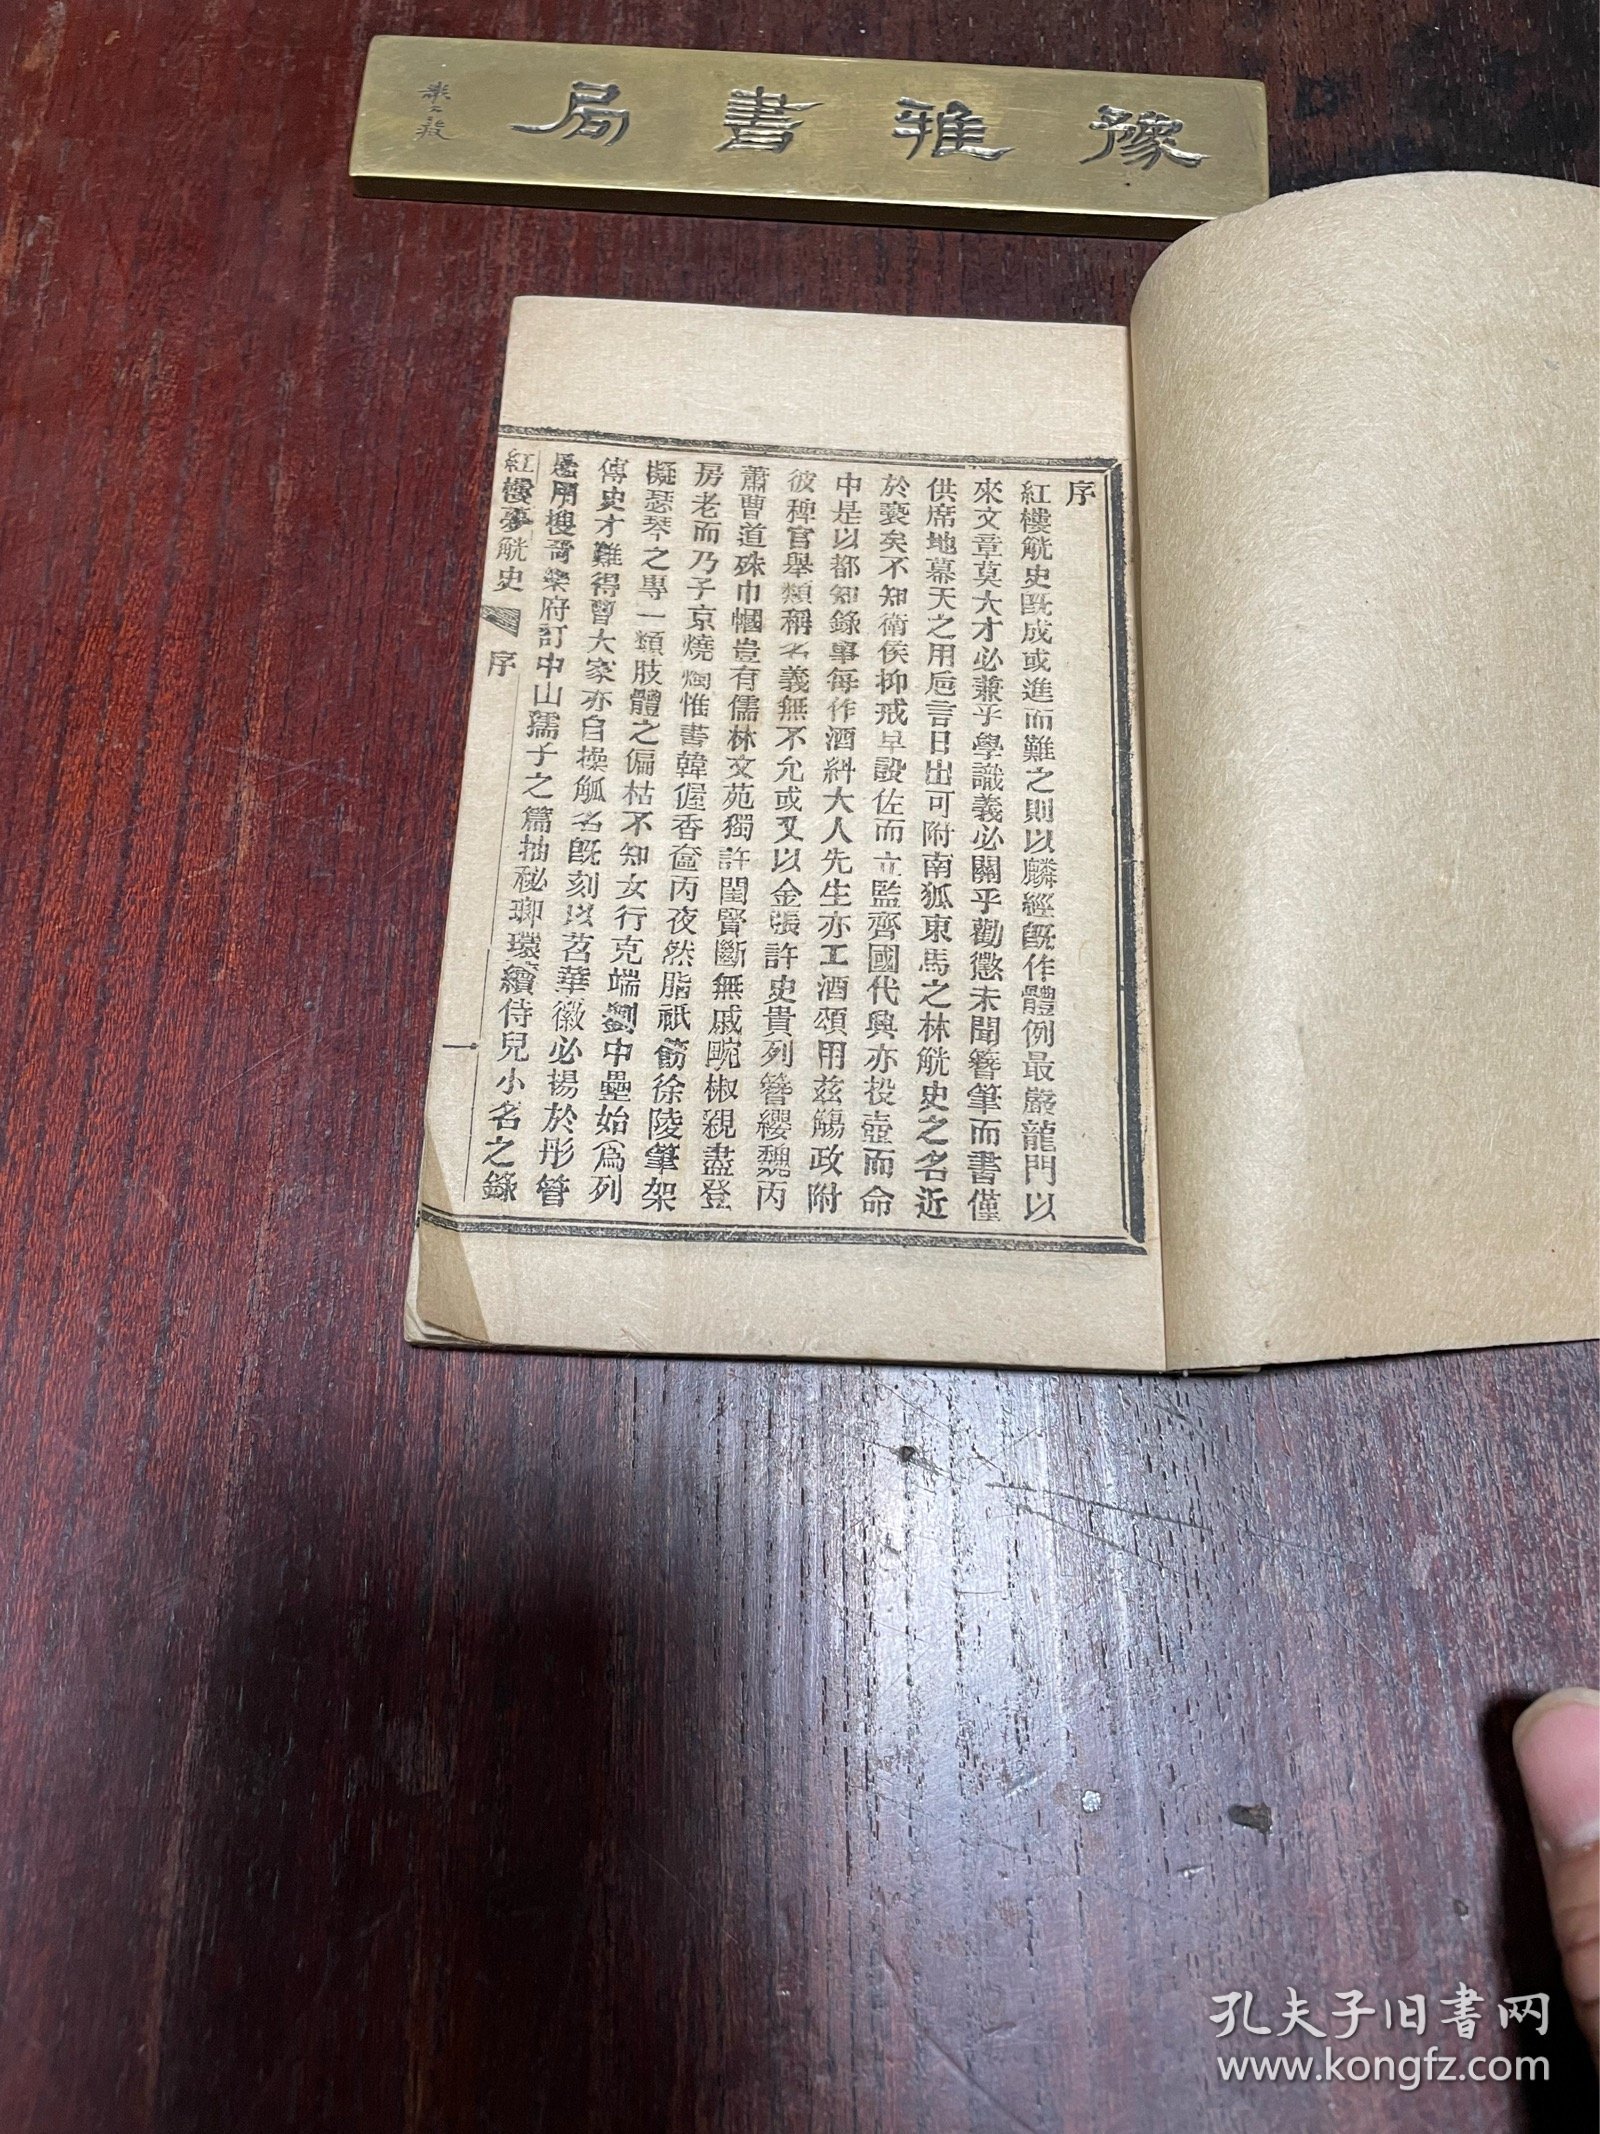 豫雅書局
序
紅樓觥史既成或進而難之則以麟經既作體例最嚴龍門以
來文章莫大才必兼乎學識義必關乎勸懲未聞簪筆而書僅
供席地幕天之用巵言日出可附南狐東馬之林觥史之名近
於褻矣不知衛侯抑戒早設佐而立監齊國代興亦投壺而命
中是以都知錄事每作酒糾大人先生亦工酒頌用兹觴政附
彼稗官舉類稱名義無不允或又以金張許史貴列簪纓魏丙
蕭曹道殊巾幗豈有儒林文苑獨許閨賢斷無戚畹椒親盡登
房老而乃子京燒燭惟書韓偓香奩丙夜然脂祇篽徐陵筆架
擬瑟琴之專一類肢體之偏枯不知女行克端劉中壘始爲列
傳史才難得曹大家亦自操觚名既刻以苕華徽必揚於彤管
愚用搜奇樂府訂中山孺子之篇抽秘瑯環續侍兒小名之錄
紅樓夢觥史
序
一
孔夫子旧書网
www.kongfz.com